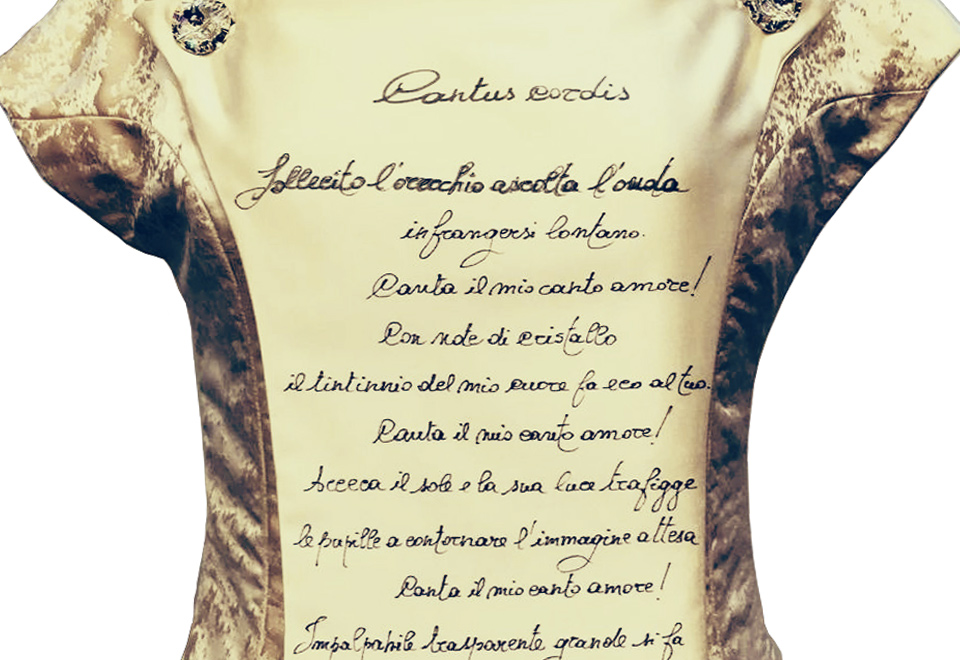 Cantus cordis
Sollecito l'orecchio ascolta l'onda
infrangersi lontano.
Canta il mio canto amore!
Con note di cristallo
il tintinnio del mio cuore fa eco al tuo.
Canta il mio canto amore!
Acceca il sole e la sua luce trafigge
le pupille a contornare l'immagine attesa
Canta il mio canto amore!
Impalpabile trasparente grande si fa